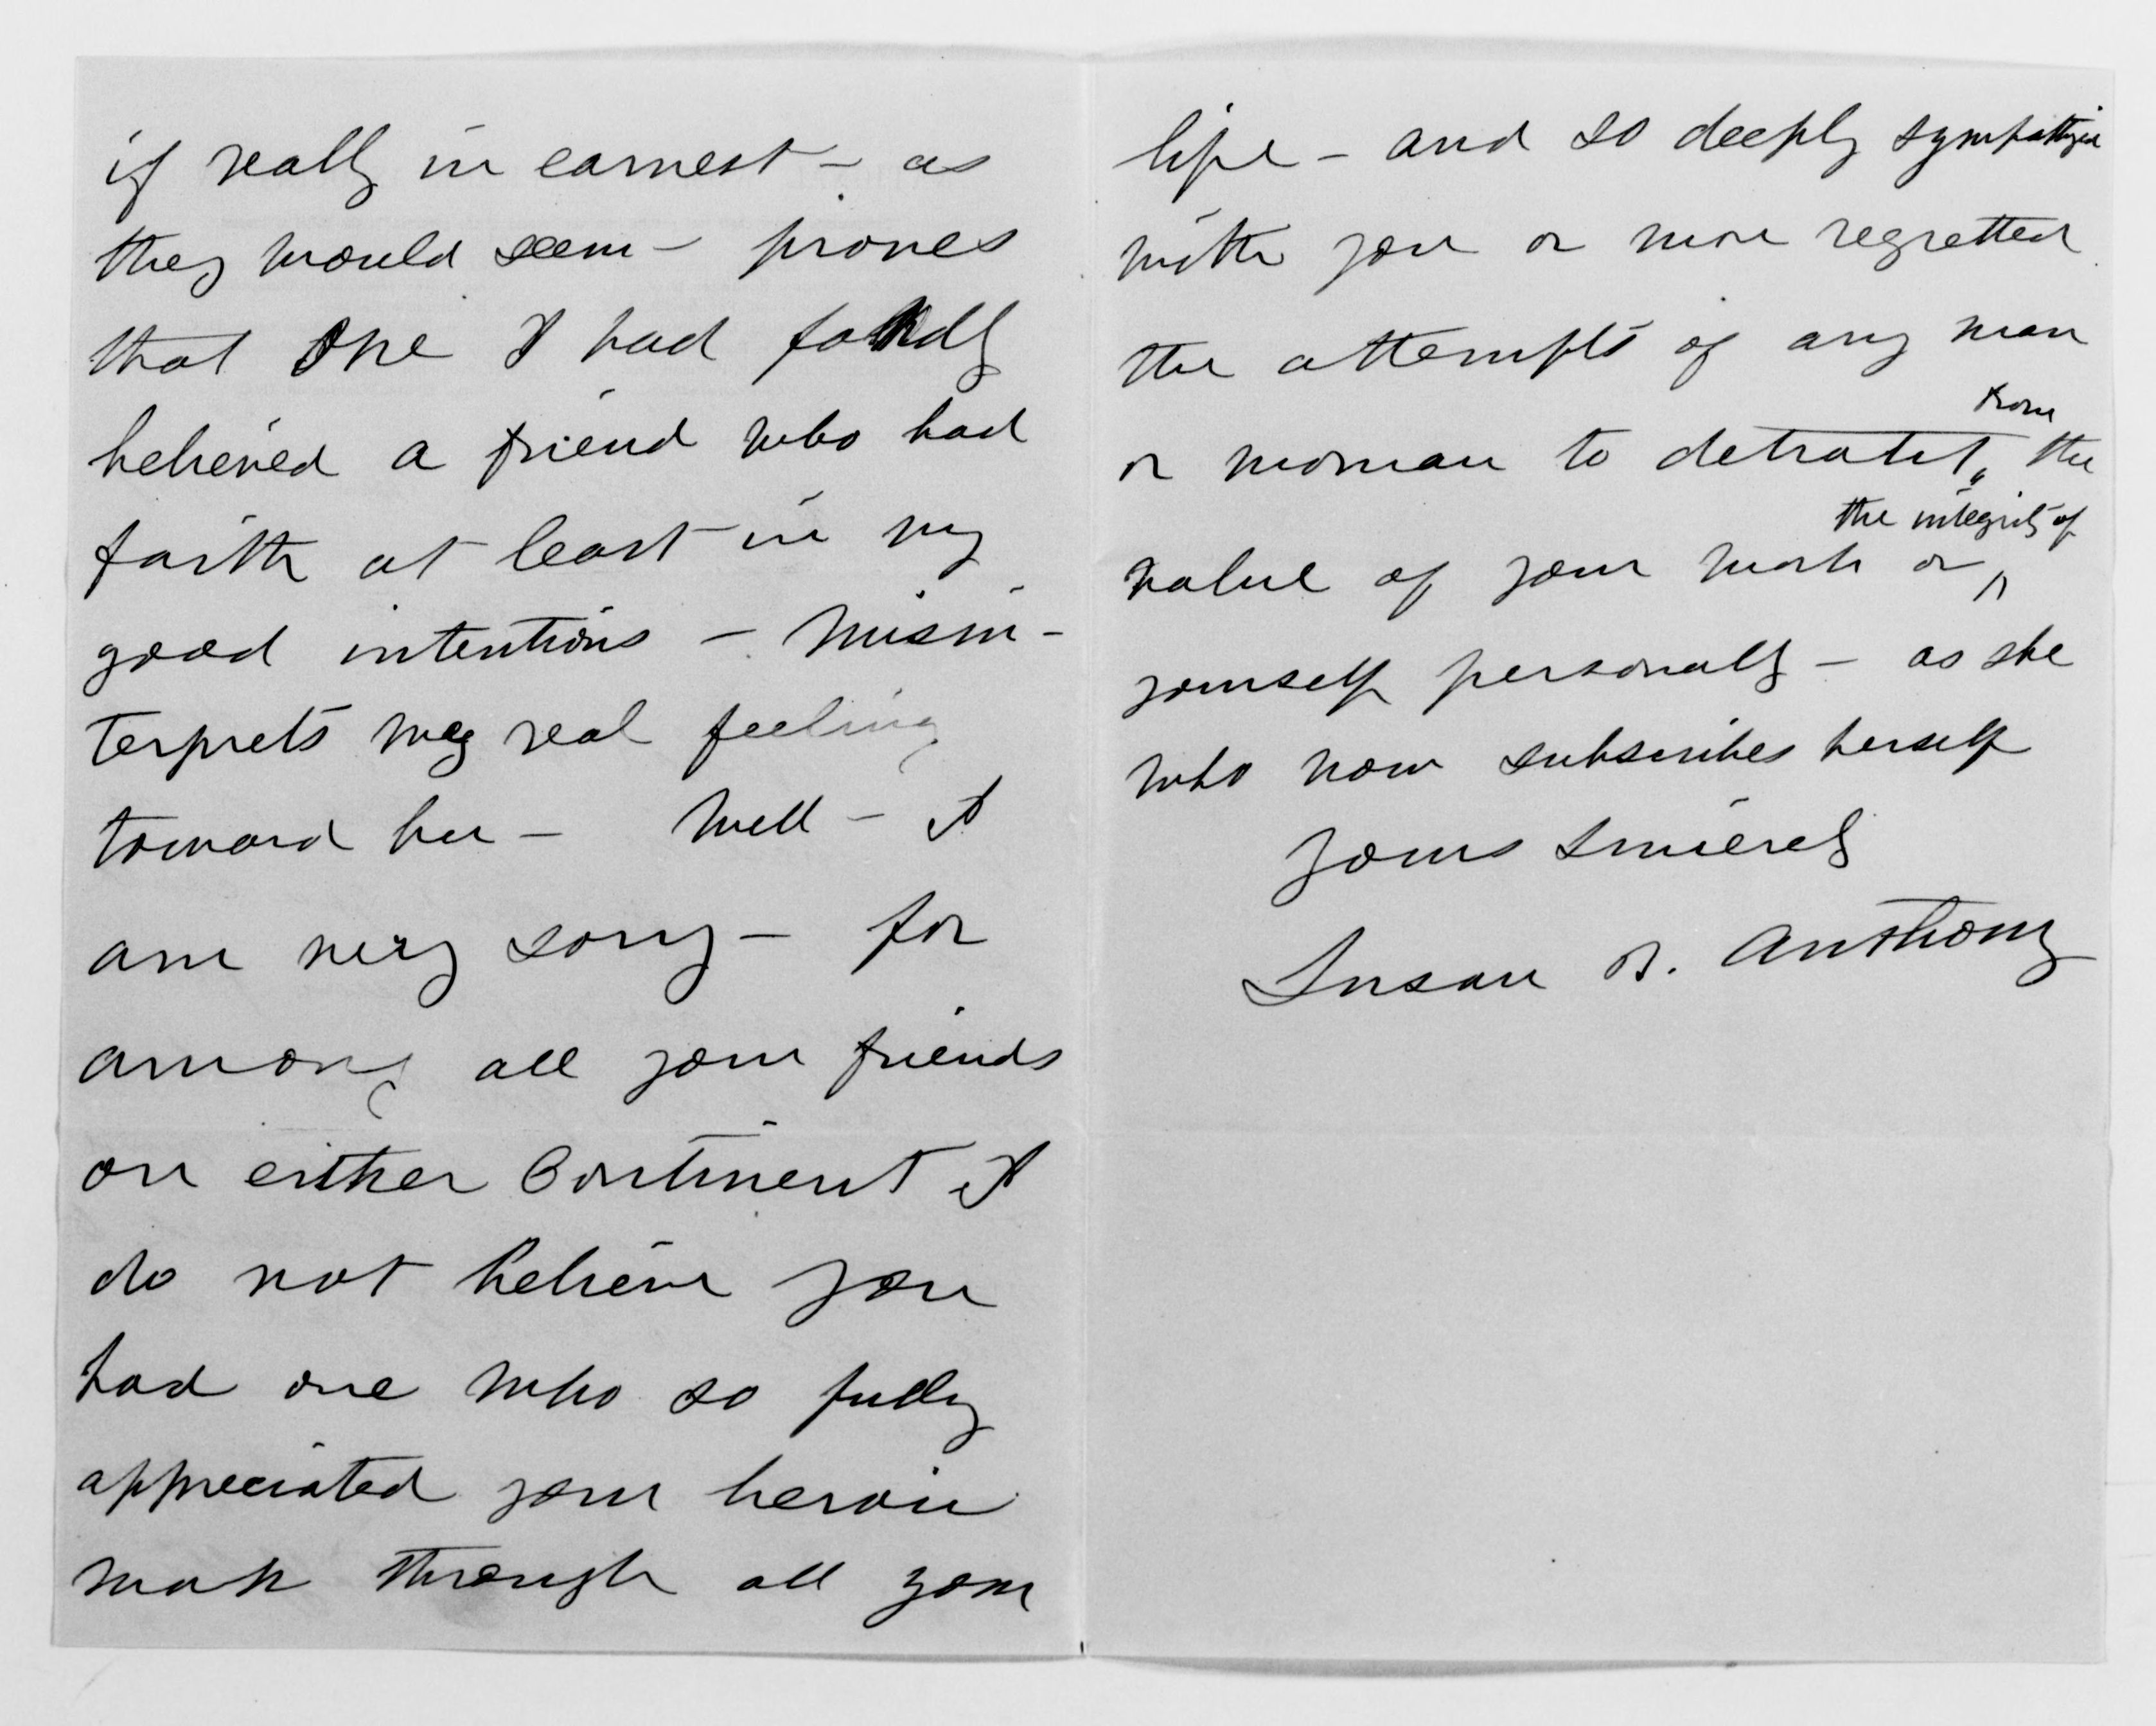 if really in earnest – as
they would seem – proves
that one I had fondly
believed a friend who had
faith at least in my
good intentions – misin-
terprets my real feeling
toward her – Well – I
am very sorry – for
among all your friends
on either Continent I
do not believe you
had one who so fully
appreciated your heroic
work through all your
life – and so deeply sympathized
with you or more regretted
the attempts of any man
from
or woman to detract the
the integrity of
value of your work or
yourself personally – as she
who now subscribes herself
Yours Sincerely
Susan B. Anthony